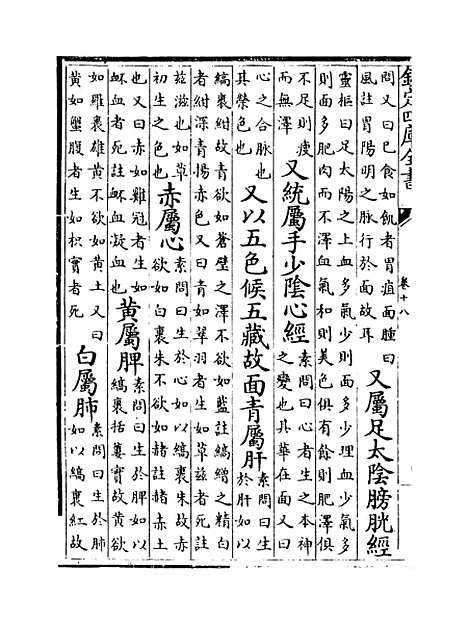 欽定四庫全書
卷十八
問又曰已食如飢者胃疸面腫曰
風註胃陽明之脈行於面故耳
又屬足太陰膀胱經
靈樞曰足太陽之上血多氣少則面多少理血少氣多
則面多肥肉而不澤血氣和則美色俱有餘則肥澤俱
不足則瘦
而無澤
又統屬手少陰心經
素問曰心者生之本神
之變也其華在面又曰
心之合脈也
其榮色也
又以五色候五藏故面青屬肝
素問曰生
於肝如以
縞裹紺故青欲如蒼璧之澤不欲如藍註縞繒之精白
者紺深青揚赤色又曰青如翠羽者生如草兹者死註
兹滋也如草
初生之色也
赤屬心
素問曰生於心如以縞裹朱故赤
欲如白裹朱不欲如赭註赭赤土
也又曰赤如雞冠者生如
衃血者死註衃血凝血也
黄屬脾
素問曰生於脾如以
縞裹括蔞實故黄欲
如羅裹雄黄不欲如黄土又曰
黄如蟹腹者生如枳實者死
白屬肺
素問曰生於肺
如以縞裹紅故